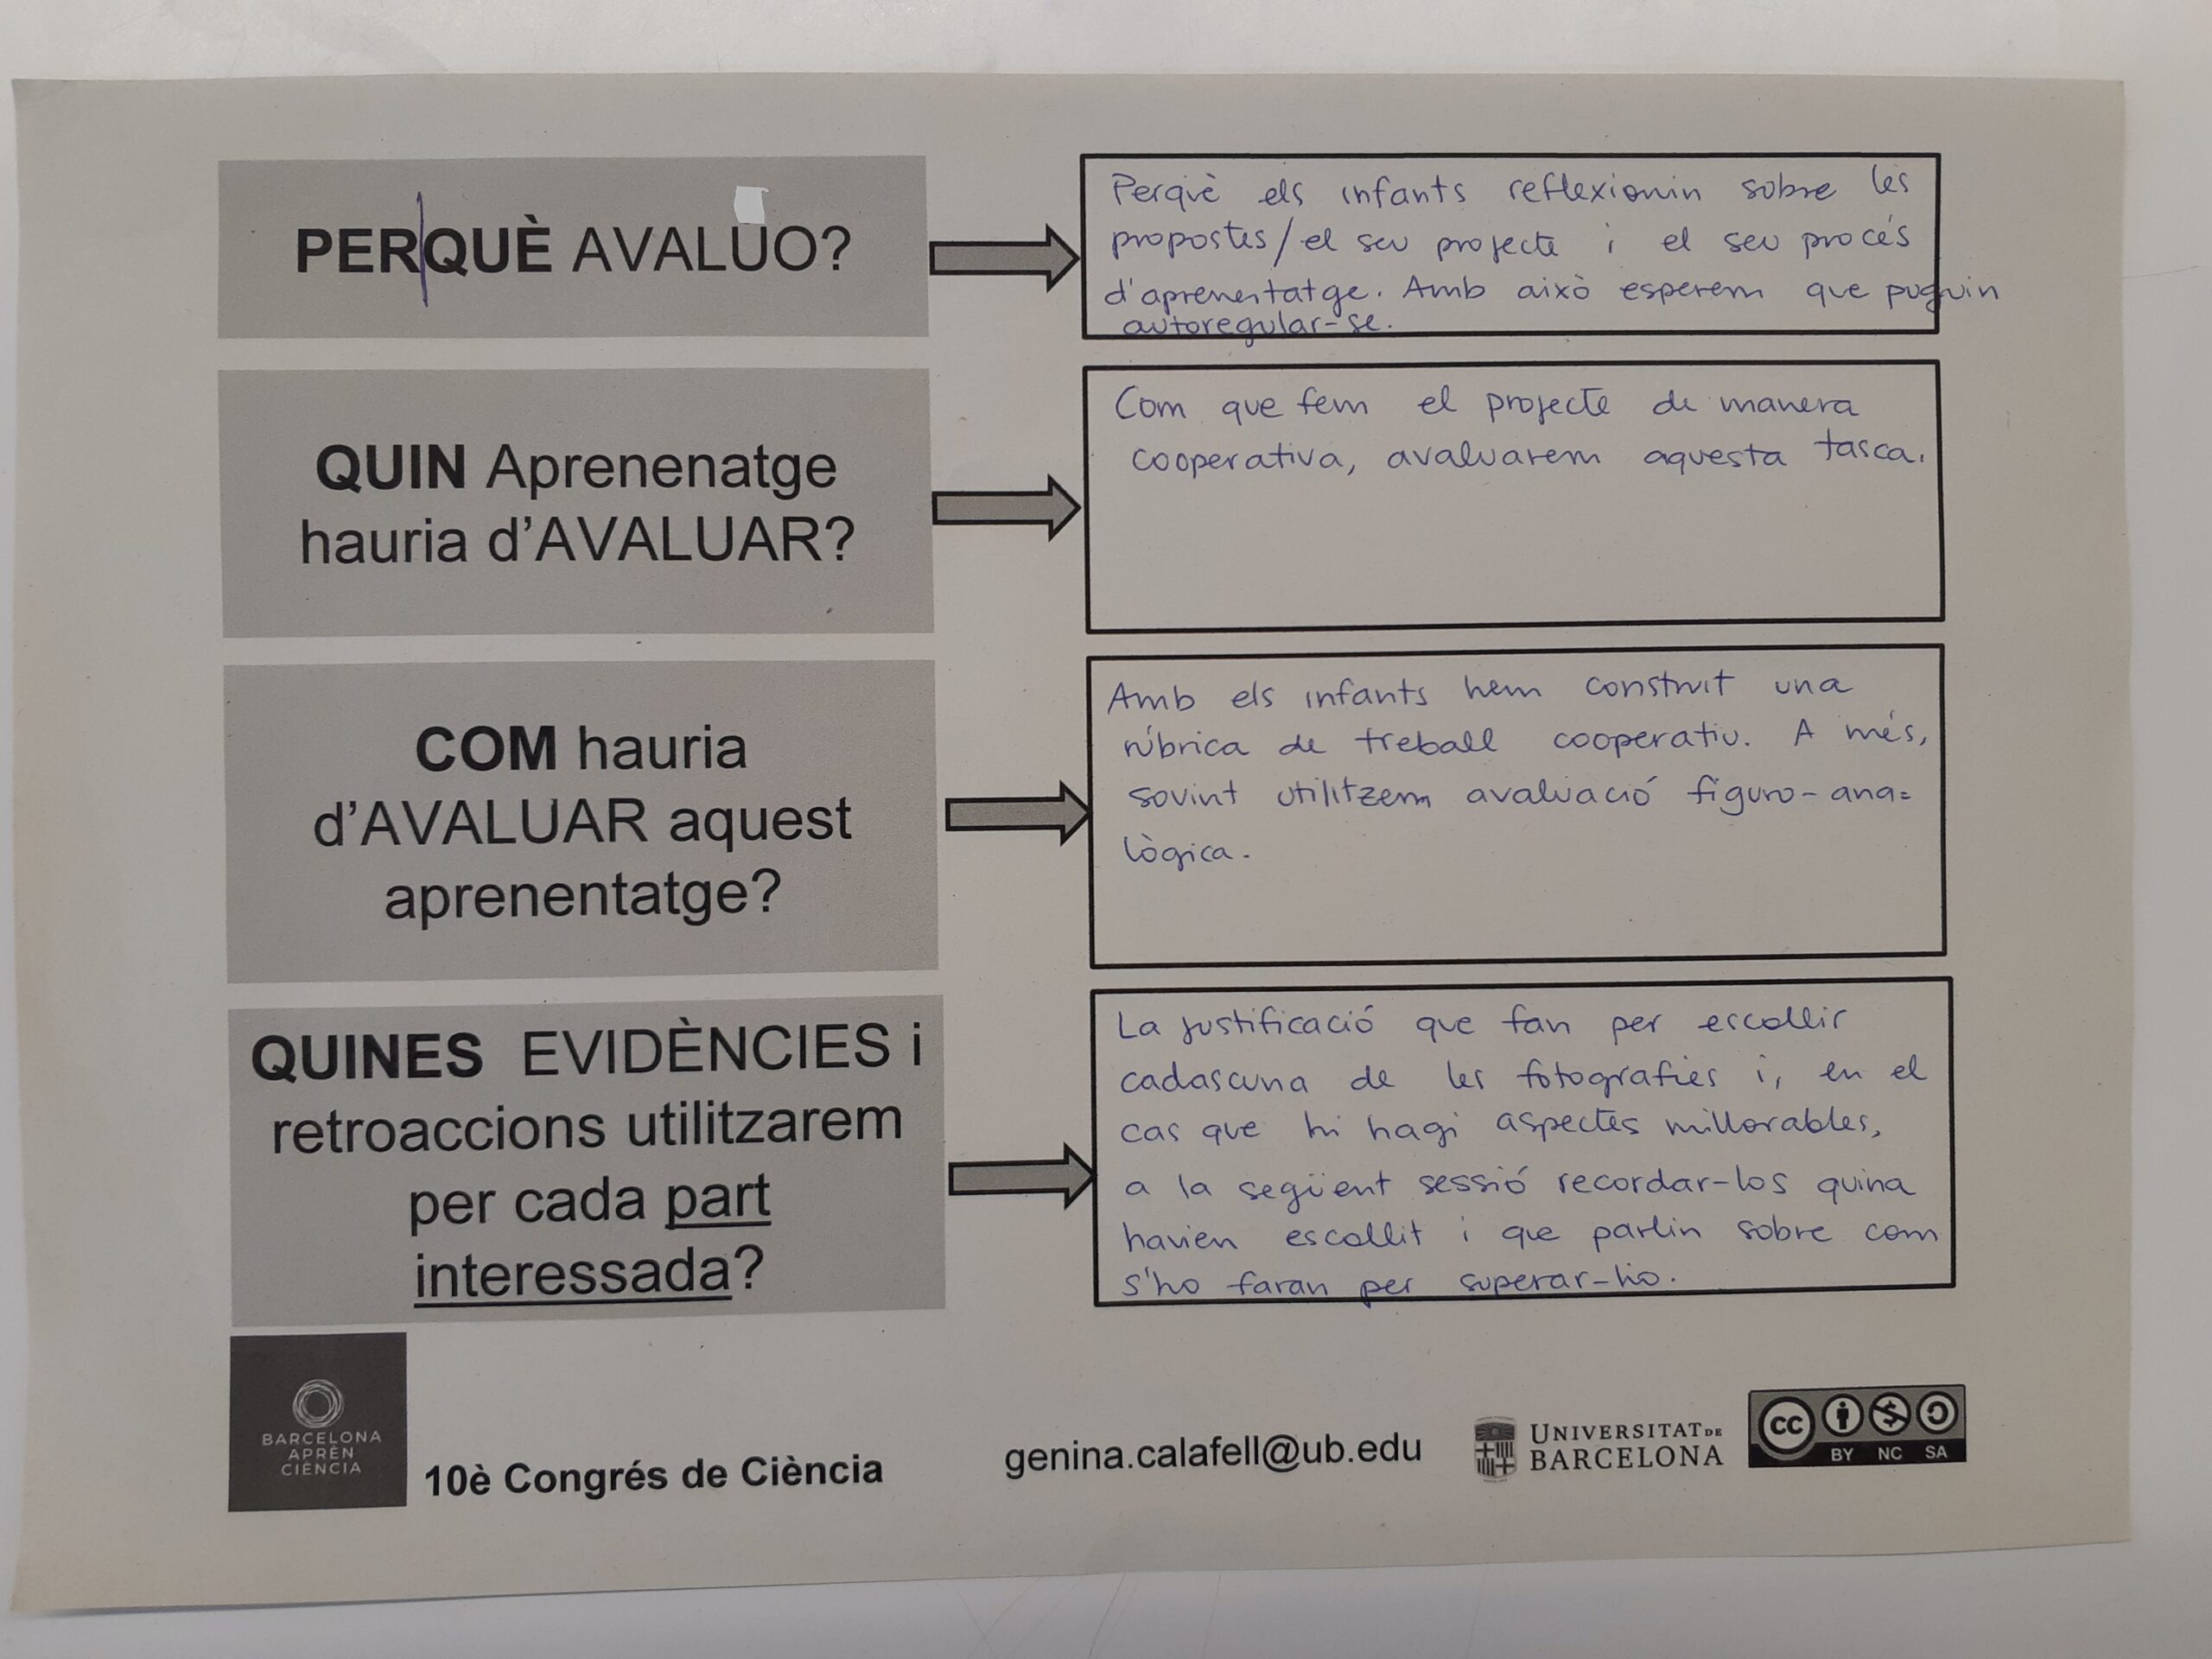 PERQUÈ AVALUO?
Perquè els infants reflexionin sobre les
propostes/el seu projecte i el seu procés
d'aprenentatge. Amb això esperem que puguin
autoregular-se.
QUIN Aprenenatge
hauria d'AVALUAR?
Com que fem el projecte de manera
cooperativa, avaluarem aquesta tasca.
COM hauria
d'AVALUAR aquest
aprenentatge?
Amb els infants hem construit una
rúbrica de treball cooperatiu. A més,
sovint utilitzem avaluació figuro-ana=
lògica.
QUINES EVIDÈNCIES i
retroaccions utilitzarem
per cada part
interessada?
La justificació que fan per escollir
cadascuna de les fotografies i, en el
cas que hi hagi aspectes millorables,
a la següent sessió recordar-los quina
havien escollit i que parlin sobre com
s'ho faran per superar-ho.
BARCELONA
APRÈN
CIÈNCIA
10è Congrés de Ciència
genina.calafell@ub.edu
UNIVERSITAT DE
BARCELONA
CC
BY NC SA